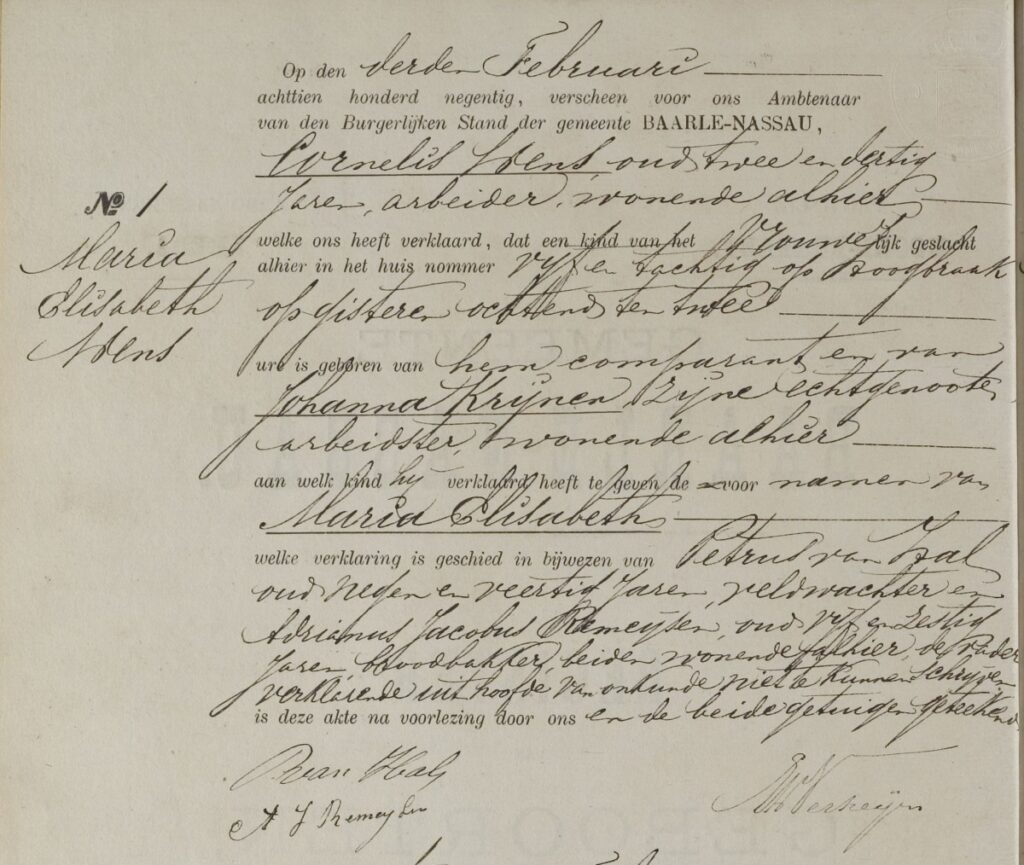 Op den derden Februari
achttien honderd negentig, verscheen voor ons Ambtenaar
van den Burgerlijken Stand der gemeente BAARLE-NASSAU,
Cornelis Wens, oud twee en dertig
Jaren, arbeider, wonende alhier
No 1
Maria
Elisabeth
Wens
welke ons heeft verklaard, dat een kind van het Vrouwelijk geslacht
alhier in het huis nommer vijf en tachtig op Hoogbraak
op gisteren ochtend ten twee
ure is geboren van hem comparant en van
Johanna Krijnen, zijne echtgenoote,
arbeidster, wonende alhier
aan welk kind hij verklaard heeft te geven de voor namen van
Maria Elisabeth
welke verklaring is geschied in bijwezen van Petrus van Hal
oud negen en veertig Jaren, veldwachter en
Adrianus Jacobus Remeijsen, oud vijf en zestig
Jaren, broodbakker, beiden wonende alhier, de Vader
verklarende uit hoofde van onkunde niet te kunnen Schrijven
is deze akte na voorlezing door ons en de beide getuigen geteekend
P van Hal
A J Remeysen
Verheijen